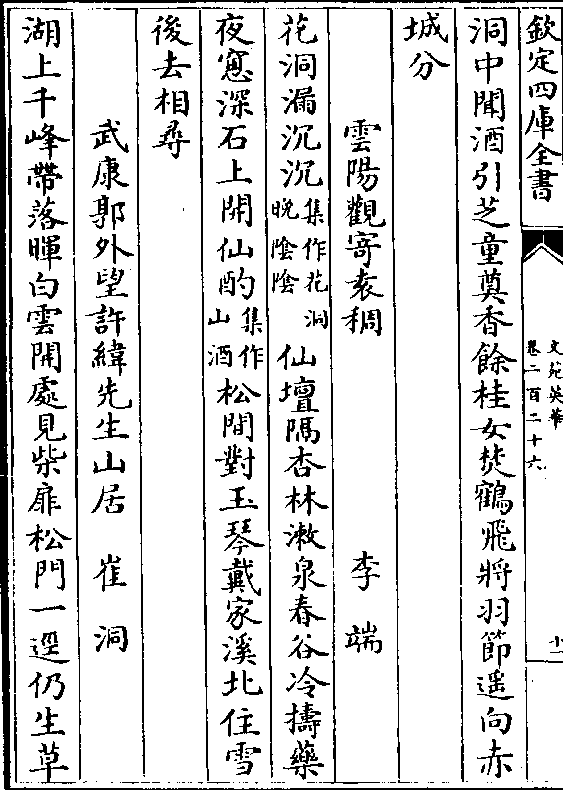 欽定四庫全書
文苑英華
卷二百二十六
十一
洞中聞酒引芝童奠香餘桂女焚鶴飛將羽節遥向赤
城分
雲陽觀寄袁稠 李端
花洞漏沉沉集作花洞晚陰陰仙壇隔杏林漱泉春谷冷擣藥
夜窓深石上開仙酌集作山酒松間對玉琴戴家溪北住雪
後去相尋
武康郭外望許緯先生山居 崔洞
湖上千峰帶落暉白雲開處見柴扉松門一逕仍生草